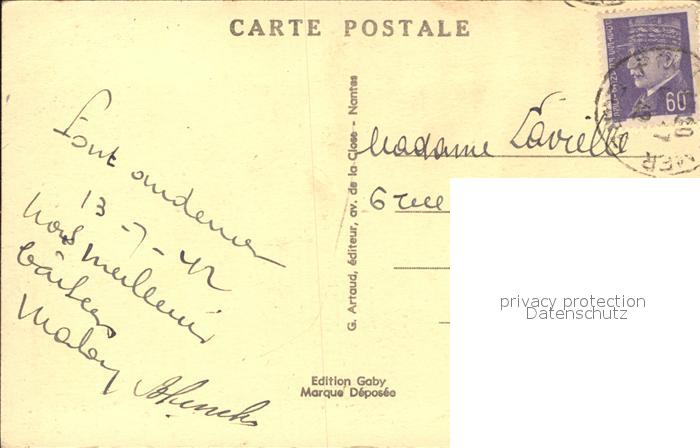 CARTE POSTALE
60
Madame Lavielle
6 rue
13-7-42
nos meilleurs
baisers
G. Artaud, éditeur, av. de la Close - Nantes
Edition Gaby
Marque Déposée
privacy protection
Datenschutz